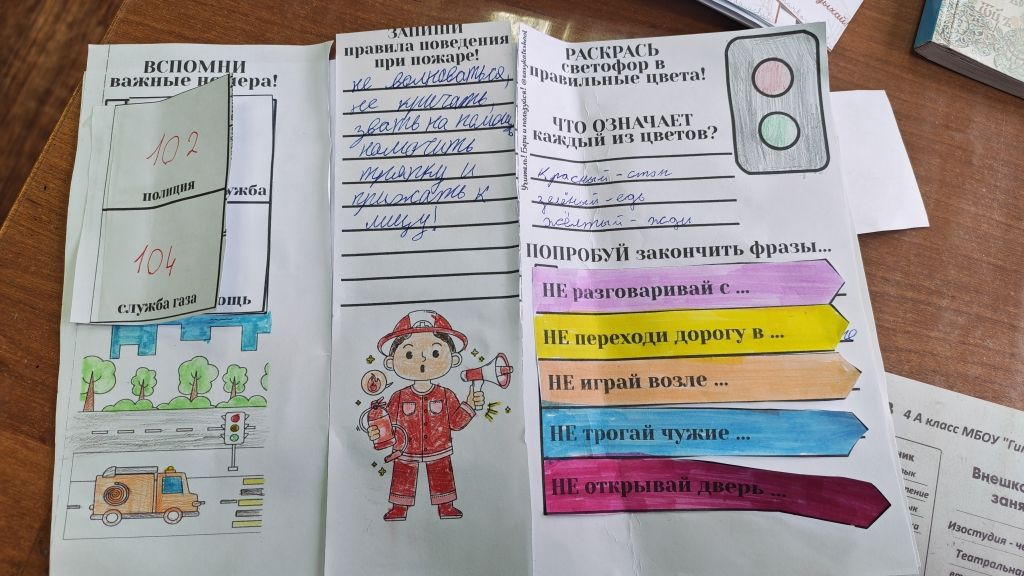 ВСПОМНИ
важные номера!
102
полиция
104
служба газа
ужба
ощь
ЗАПИШИ
правила поведения
при пожаре!
не волноваться,
не кричать,
звать на помощь
намочить
тряпку и
прижать к
лицу!
Учитель! Бери и пользуйся!
РАСКРАСЬ
светофор в
правильные цвета!
ЧТО ОЗНАЧАЕТ
каждый из цветов?
красный - стоп
зелёный - едь
жёлтый - жди
ПОПРОБУЙ закончить фразы...
НЕ разговаривай с ...
НЕ переходи дорогу в ...
НЕ играй возле ...
НЕ трогай чужие ...
НЕ открывай дверь ...
4 А класс МБОУ "Ги
ник
Внешко
заня
Изостудия - че
Театральна